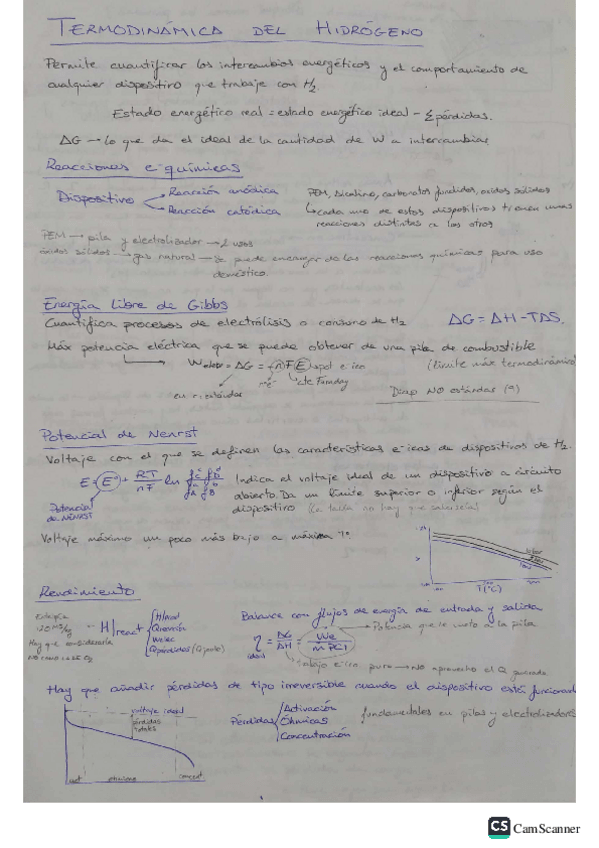 TERMODINÁMICA DEL HIDRÓGENO
Permite cuantificar los intercambios energéticos y el comportamiento de
cualquier dispositivo que trabaje con H2
Estado energético real = estado energético ideal - Σ pérdidas.
ΔG → lo que da el ideal de la cantidad de W a intercambiar
Reacciones e-químicas
Dispositivo
Reacción anódica
Reacción catódica
PEM, alcalino, carbonatos fundidos, óxidos sólidos
cada uno de estos dispositivos tienen unas
reacciones distintas a los otros
PEM → pila y electrolizador → usos
óxidos sólidos → gas natural → Se puede encargar de las reacciones químicas para uso
doméstico.
Energía Libre de Gibbs
Cuantifica procesos de electrólisis o consumo de H2
ΔG = ΔH - TΔS.
Máx potencia eléctrica que se puede obtener de una pila de combustible
(límite máx termodinámico)
Welec = ΔG = -nFE
cte Faraday
Disp NO estándar (º)
Potencial de Nernst
Voltaje con el que se definen las características e-icas de dispositivos de H2.
E = Eº + RT/nF ln
Potencial
de Nernst
Indica el voltaje ideal de un dispositivo a circuito
abierto. Da un límite superior o inferior según el
dispositivo (la tabla no hay que sabérsela)
Voltaje máximo un poco más bajo a máxima Tª
T(ºC)
Rendimiento
Entalpía
120 MJ/kg
Hay que considerarla
H|react
Welec
Q pérdidas
Balance con flujos de energía de entrada y salida
η = ΔG/ΔH = We/m PCI
ideal
Potencia que se mete a la pila
trabajo e-ico puro → No aprovecho el Q generado
Hay que añadir pérdidas de tipo irreversible cuando el dispositivo está funcionando
voltaje ideal
pérdidas
totales
act
ohmicas
concent
Pérdidas
Activación
Óhmicas
Concentración
fundamentales en pilas y electrolizadores
CS CamScanner